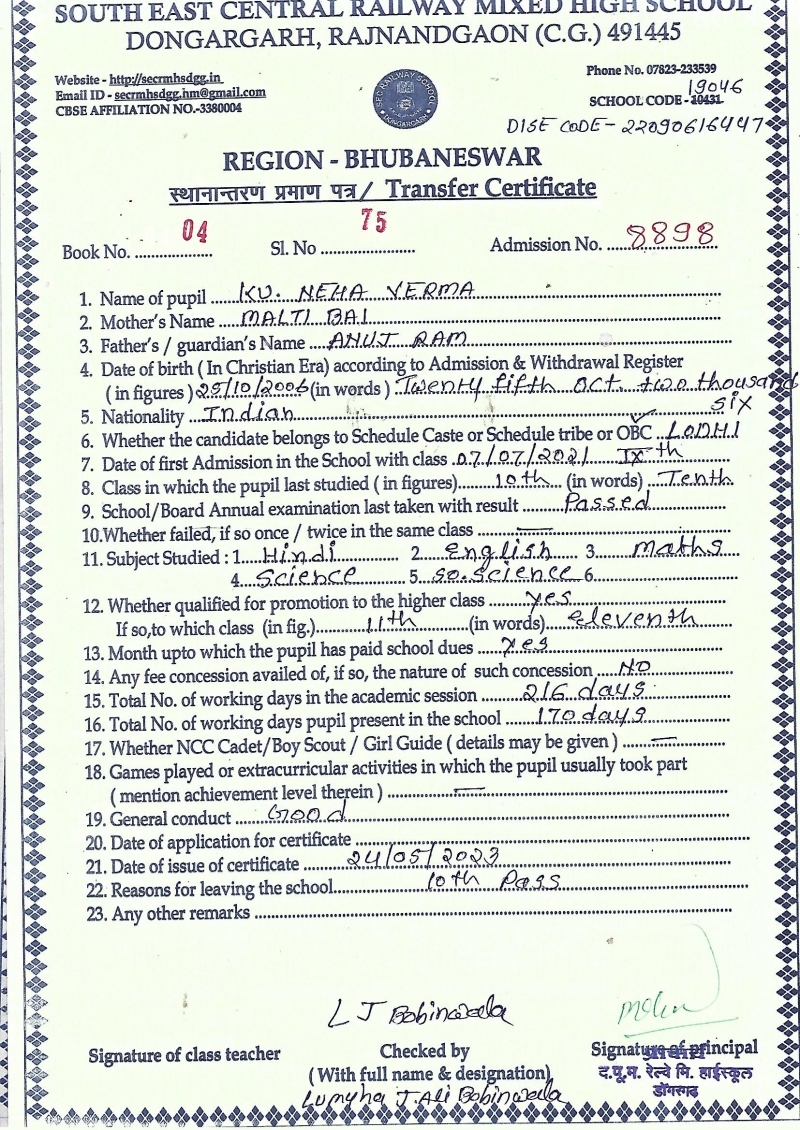 SOUTH EAST CENTRAL RAILWAY MIXED HIGH SCHOOL
DONGARGARH, RAJNANDGAON (C.G.) 491445
Website - http://secrmhsdgg.in
Email ID - secrmhsdgg.hm@gmail.com
CBSE AFFILIATION NO.-3380004
SEC RAILWAY SCHOOL
DONGARGARH
Phone No. 07823-233539
19046
SCHOOL CODE - 10431
DISE CODE - 22090616447
REGION - BHUBANESWAR
स्थानान्तरण प्रमाण पत्र / Transfer Certificate
Book No. 04 Sl. No 75 Admission No. 8898
1. Name of pupil KU. NEHA VERMA
2. Mother's Name MALTI BAI
3. Father's / guardian's Name ANUJ RAM
4. Date of birth ( In Christian Era) according to Admission & Withdrawal Register
( in figures ) 25/10/2006 (in words ) Twenty fifth Oct. two thousand
six
5. Nationality Indian
6. Whether the candidate belongs to Schedule Caste or Schedule tribe or OBC LODHI
7. Date of first Admission in the School with class 07/07/2021 IXth
8. Class in which the pupil last studied ( in figures) 10th (in words) Tenth
9. School/Board Annual examination last taken with result Passed
10.Whether failed, if so once / twice in the same class —
11. Subject Studied : 1 Hindi 2 English 3 maths
4 Science 5 so.science 6
12. Whether qualified for promotion to the higher class yes
If so,to which class (in fig.) 11th (in words) Eleventh
13. Month upto which the pupil has paid school dues yes
14. Any fee concession availed of, if so, the nature of such concession NO
15. Total No. of working days in the academic session 216 days
16. Total No. of working days pupil present in the school 170 days
17. Whether NCC Cadet/Boy Scout / Girl Guide ( details may be given ) —
18. Games played or extracurricular activities in which the pupil usually took part
( mention achievement level therein ) —
19. General conduct Good
20. Date of application for certificate
21. Date of issue of certificate 24/05/2023
22. Reasons for leaving the school 10th Pass
23. Any other remarks
L J Bobinwala
Signature of class teacher Checked by Signature of principal
(With full name & designation)
Lumyha J. Ali Bobinwala
प्राचार्य
द.पू.म. रेल्वे मि. हाईस्कूल
डोंगरगढ़